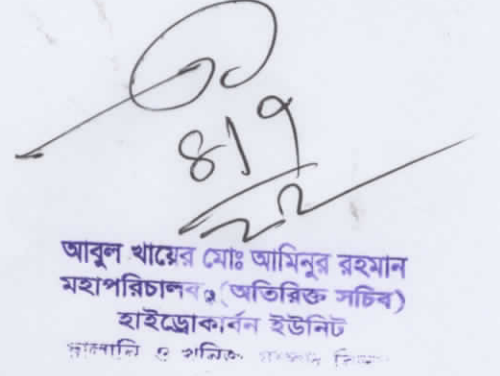 ৪।৭
২২
আবুল খায়ের মোঃ আমিনুর রহমান
মহাপরিচালক (অতিরিক্ত সচিব)
হাইড্রোকার্বন ইউনিট
জ্বালানি ও খনিজ সম্পদ বিভাগ